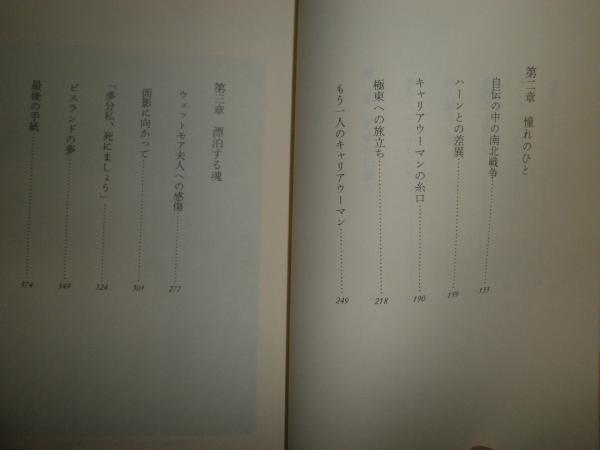 第二章 憧れのひと
自伝の中の南北戦争……133
ハーンとの差異……159
キャリアウーマンの糸口……190
極東への旅立ち……218
もう一人のキャリアウーマン……249
第三章 漂泊する魂
ウェットモア夫人への感傷……277
面影に向かって……301
「多分私、死にましょう」……324
ビスランドの夢……349
最後の手紙……374